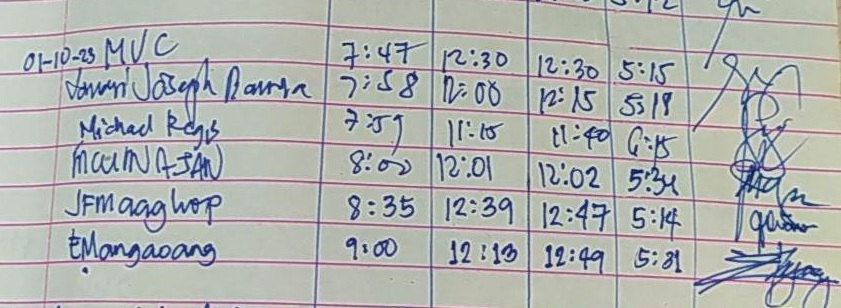 01-10-23 MVC 7:47 12:30 12:30 5:15
Joseph 7:58 12:00 12:15 5:18
Michael Regis 7:59 11:15 11:40 6:15
8:00 12:01 12:02 5:34
JFMaaghop 8:35 12:39 12:47 5:14
EMangaoang 9:00 12:13 12:49 5:31